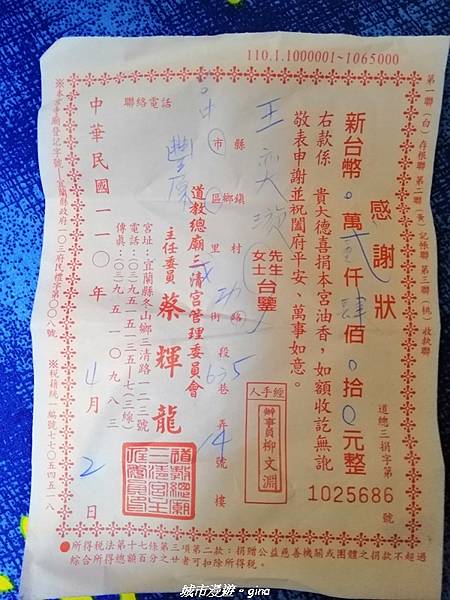 110.1.1000001~1065000
第一聯(白)存根聯 第二聯(黃)記帳聯 第三聯(桃)收執聯
感謝狀
道總三捐字第1025686號
新台幣0萬貳仟肆佰0拾0元整
右款係 貴大德喜捐本宮油香，如額收訖無訛
敬表申謝並祝闔府平安、萬事如意。
王奕 先生女士台鑒
經手人
辦事員 柳文淵
縣市 鄉鎮區 村里 成功路街 段 635巷 弄 14號 樓
豐原
聯絡電話
道教總廟三清宮管理委員會
主任委員 蔡輝龍
宮址：宜蘭縣冬山鄉三清路一二三號
電話：(○三)九五一五一三五~七(三線)
傳真：(○三)九五一○九八三
中華民國一一○年4月2日
道教總廟三清宮
※稅籍統一編號七七○五四五一八
●所得稅法第十七條第三項第二款：捐贈公益慈善機關或團體之捐款不超過
綜合所得總額百分之廿者可扣除所得稅。
城市漫遊。gina